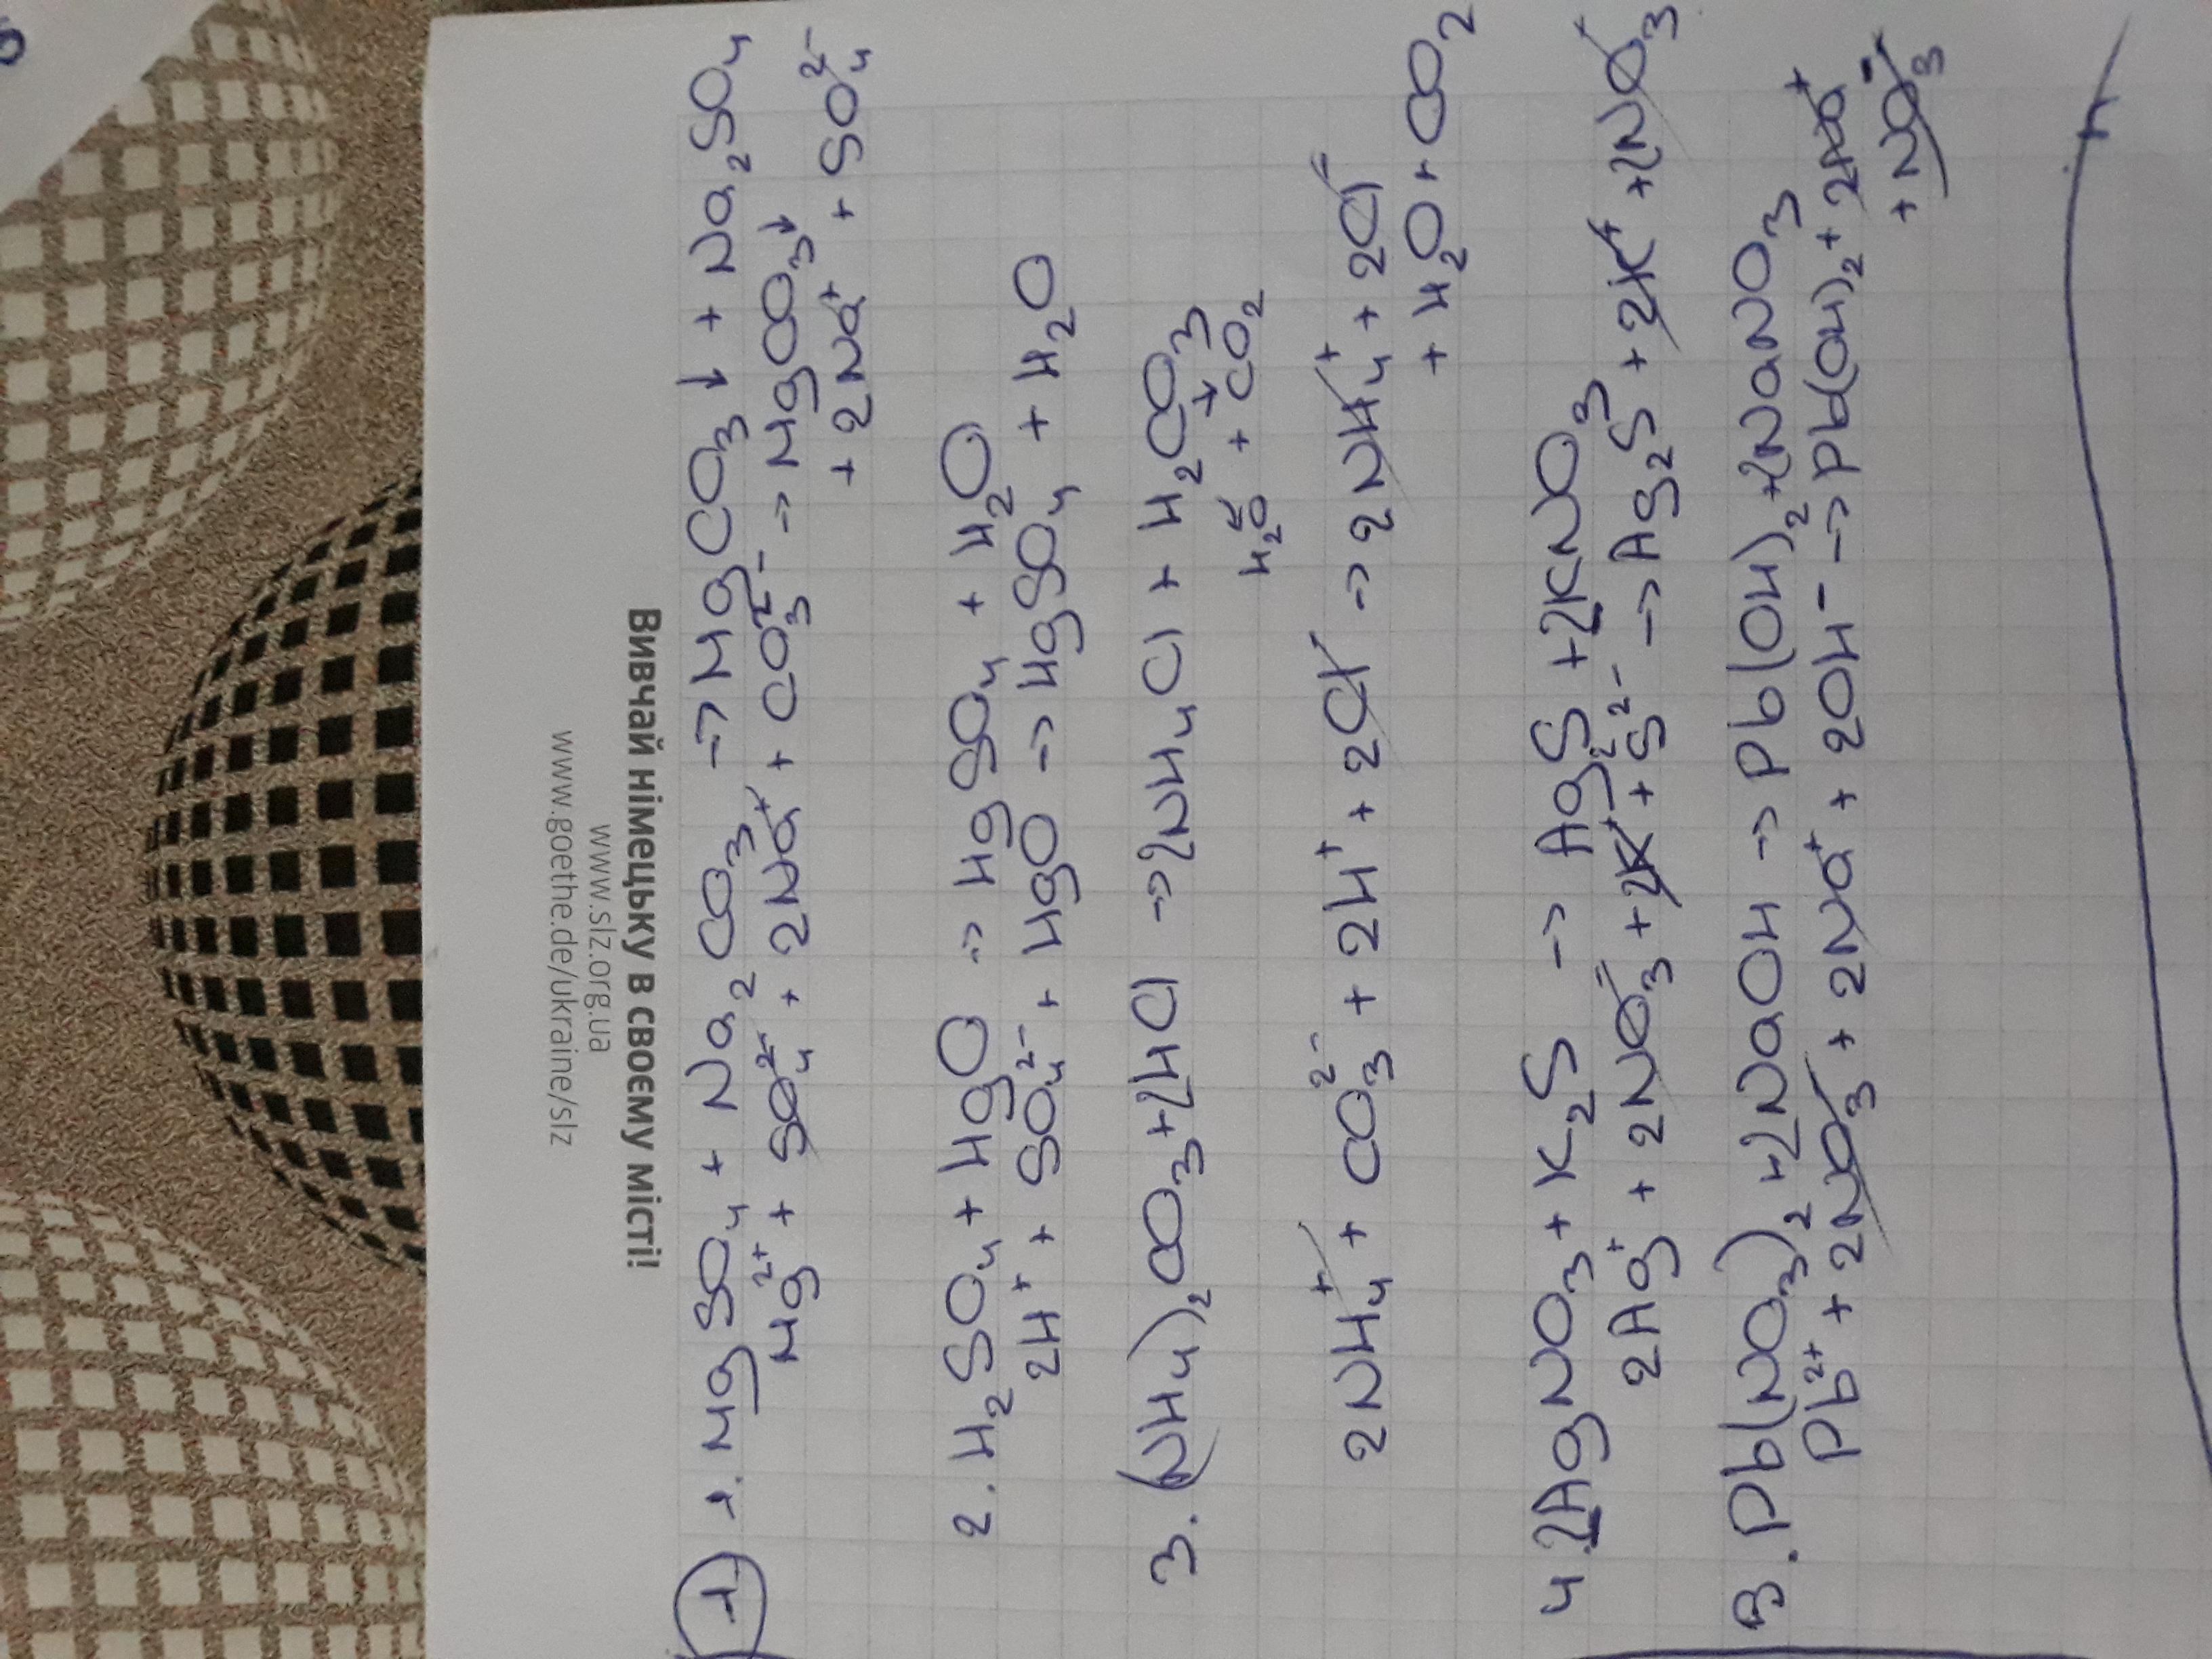 Вивчай німецьку в своєму місті!
www.slz.org.ua
www.goethe.de/ukraine/slz
1 1. MgSO4 + Na2CO3 -> MgCO3↓ + Na2SO4
Mg2+ + SO42- + 2Na+ + CO32- -> MgCO3↓
+ 2Na+ + SO42-
2. H2SO4 + HgO -> HgSO4 + H2O
2H+ + SO42- + HgO -> HgSO4 + H2O
3. (NH4)2CO3 + 2HCl -> 2NH4Cl + H2CO3
H2O + CO2
2NH4+ + CO32- + 2H+ + 2Cl- -> 2NH4+ + 2Cl-
+ H2O + CO2
4. 2AgNO3 + K2S -> Ag2S + 2KNO3
2Ag+ + 2NO3- + 2K+ + S2- -> Ag2S + 2K+ + 2NO3
5. Pb(NO3)2 + 2NaOH -> Pb(OH)2 + 2NaNO3
Pb2+ + 2NO3- + 2Na+ + 2OH- -> Pb(OH)2 + 2Na+
+ NO3-